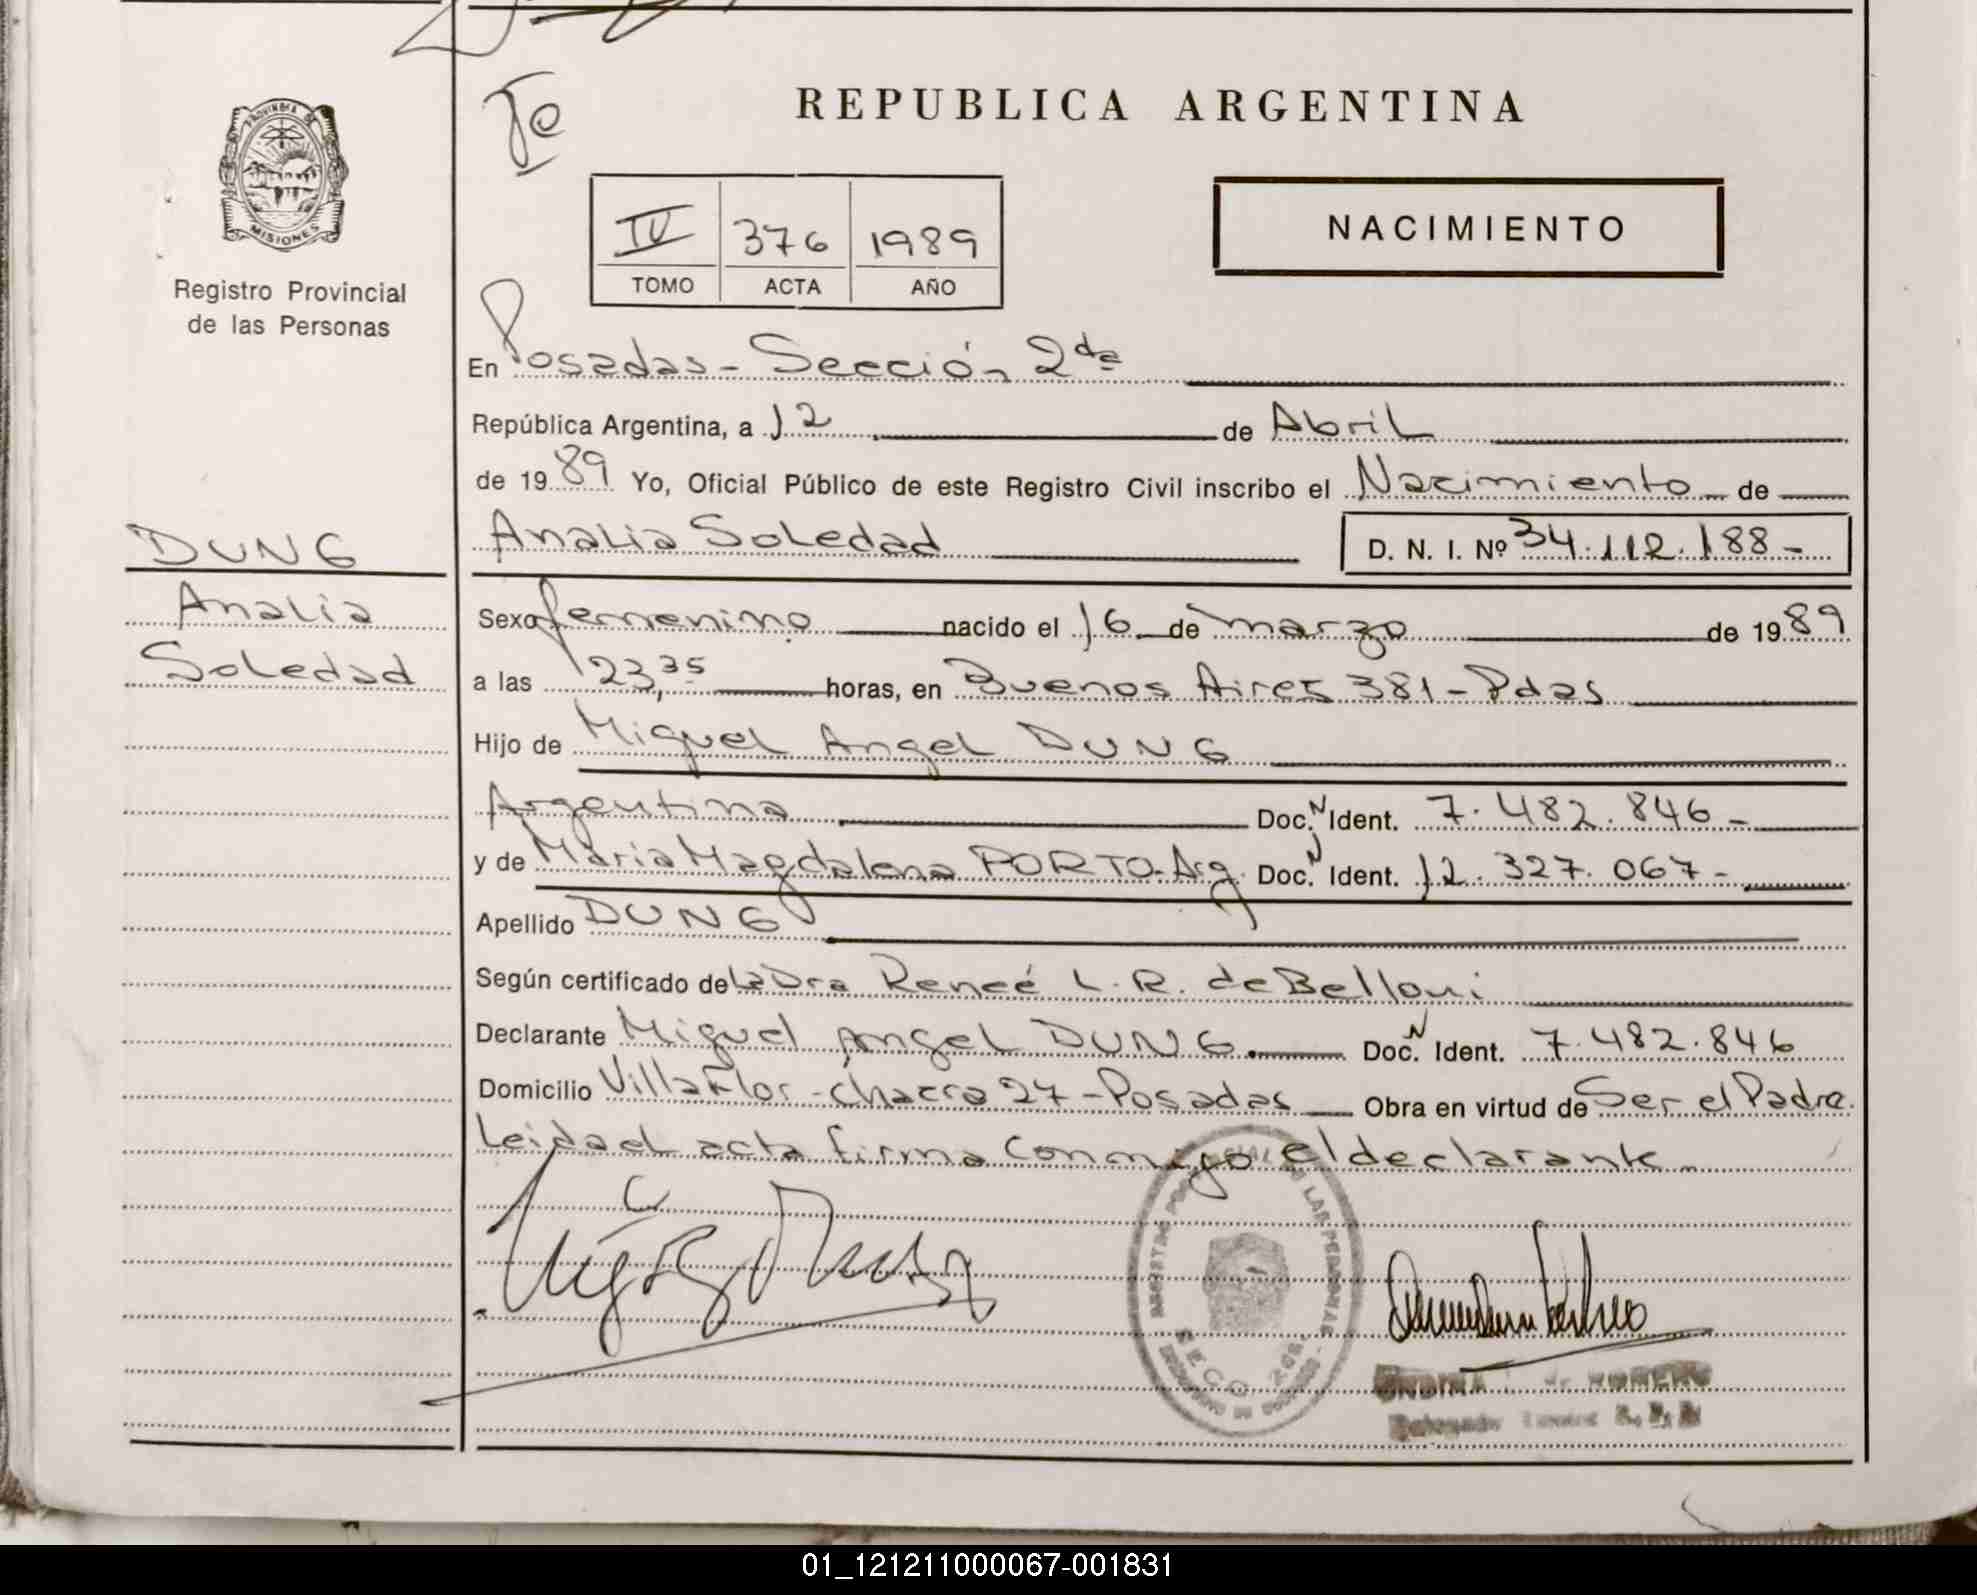 Te
REPUBLICA ARGENTINA
PROVINCIA DE
MISIONES
Registro Provincial
de las Personas
IV 376 1989
TOMO ACTA AÑO
NACIMIENTO
En Posadas - Sección 2da
República Argentina, a 12 de Abril
de 1989 Yo, Oficial Público de este Registro Civil inscribo el Nacimiento de
DUNG
Analia
Soledad
Analia Soledad D. N. I. Nº 34.112.188-
Sexo femenino nacido el 16 de marzo de 1989
a las 23,35 horas, en Buenos Aires 381 - Pdas
Hijo de Miguel Angel DUNG
Argentina Doc. N Ident. 7.482.846-
y de Maria Magdalena PORTO-Arg. Doc. N Ident. 12.327.067-
Apellido DUNG
Según certificado de La Dra Reneé L. R. de Belloni
Declarante Miguel Angel DUNG Doc. N Ident. 7.482.846
Domicilio Villa Flor - Chacra 27 - Posadas Obra en virtud de Ser el Padre.
Leida el acta firma conmigo el declarante
REGISTRO PROVINCIAL DE LAS PERSONAS
SECC. 2da
MORENO
01_121211000067-001831